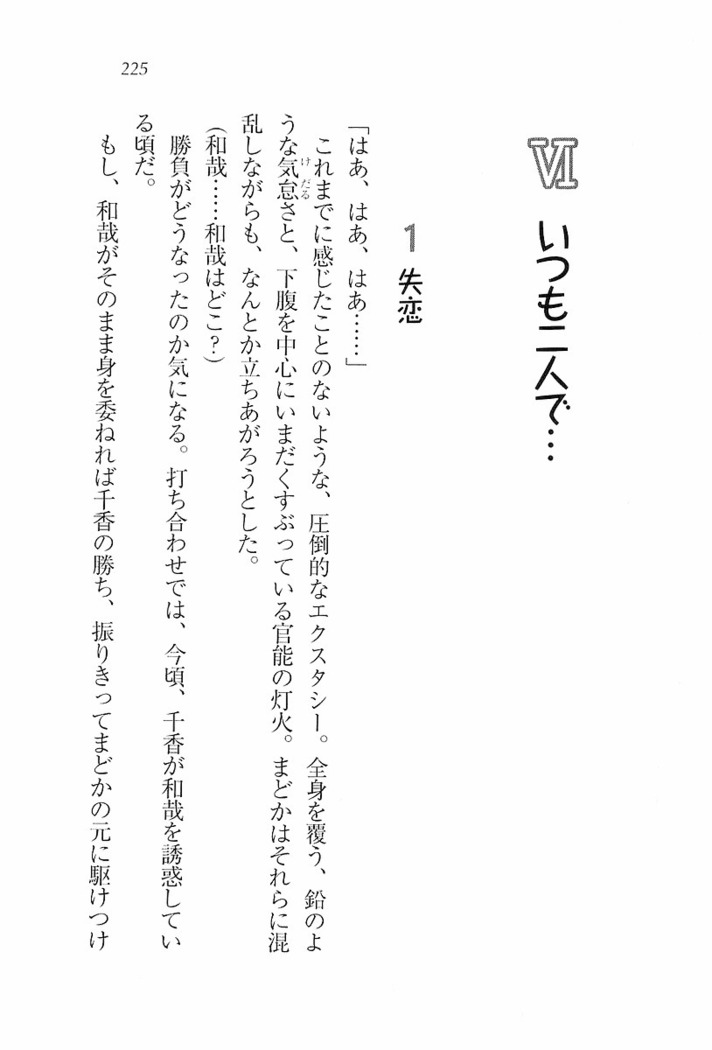 225
Ⅵ いつも二人で…
1 失恋
「はあ、はあ、はあ……」
これまでに感じたことのないような、圧倒的なエクスタシー。全身を覆う、鉛のよ
うな気怠さと、下腹を中心にいまだくすぶっている官能の灯火。まどかはそれらに混
けだる
乱しながらも、なんとか立ちあがろうとした。
(和哉……和哉はどこ?)
勝負がどうなったのか気になる。打ち合わせでは、今頃、千香が和哉を誘惑してい
る頃だ。
もし、和哉がそのまま身を委ねれば千香の勝ち、振りきってまどかの元に駆けつけ